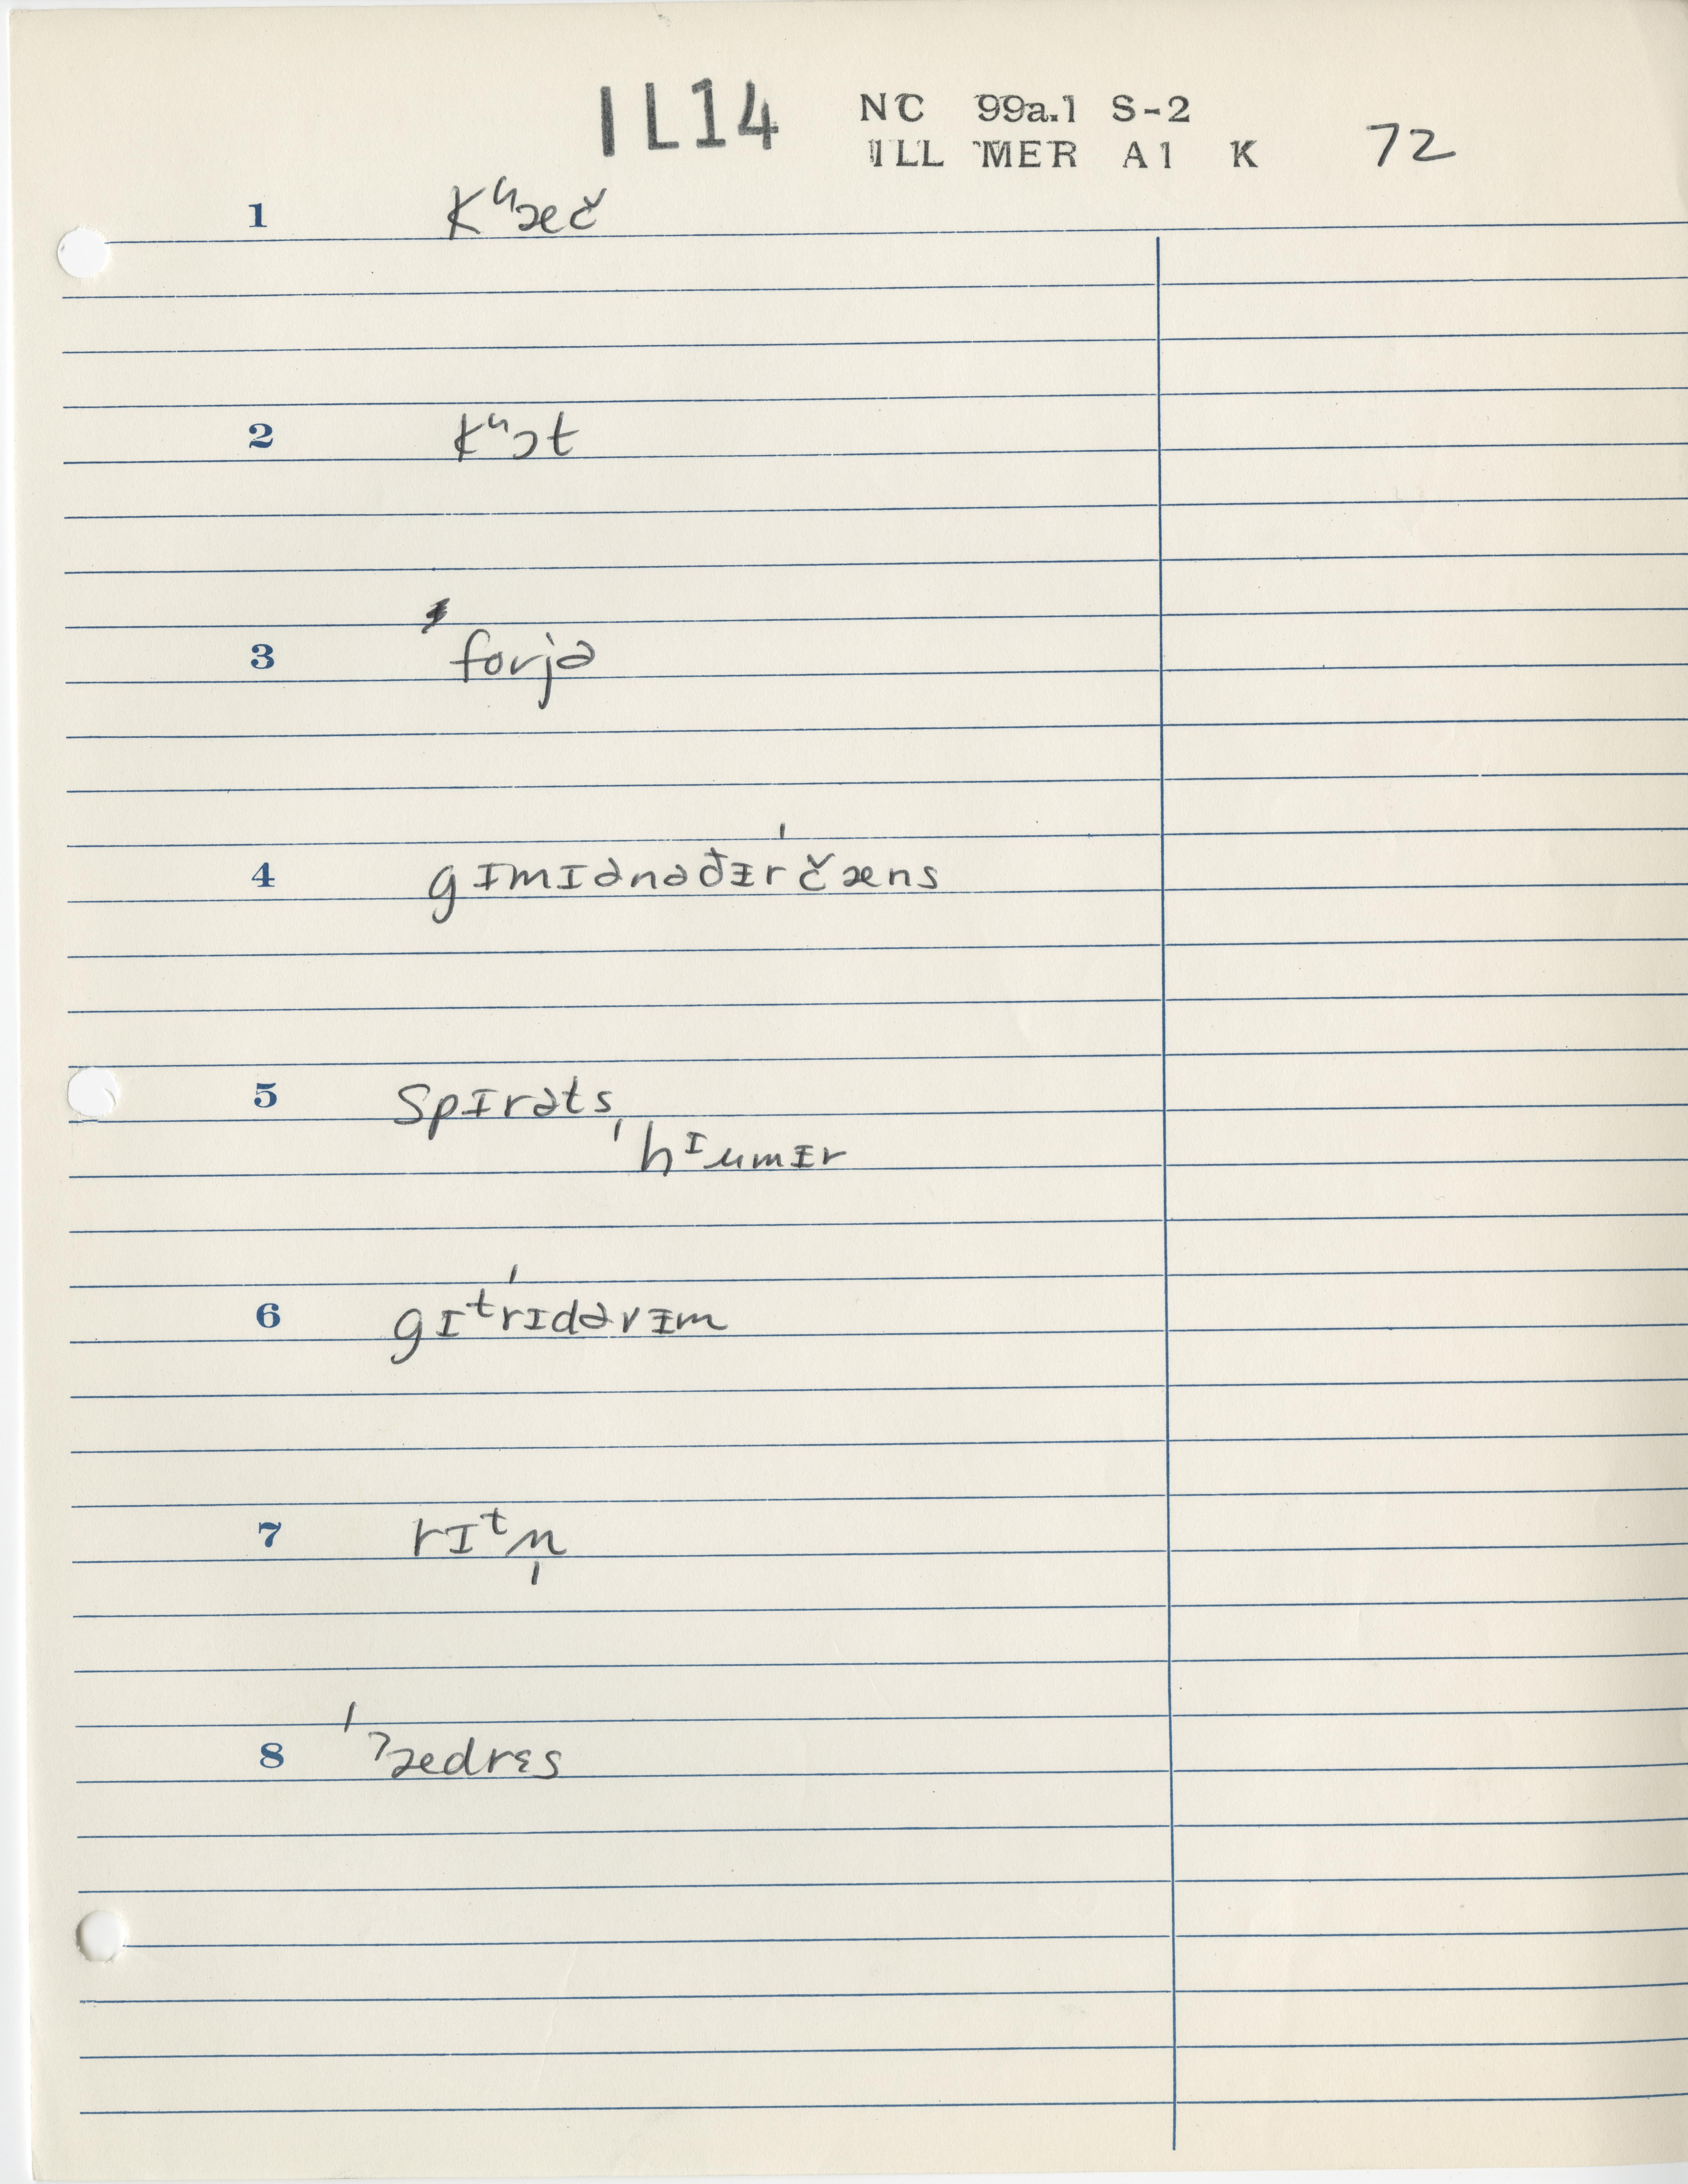 IL14 NC 99a.1 S-2
ILL MER A1 K 72
1 Kʰæč
2 kʰɔt
3 forjə
4 gɪmɪənəðᵻr ˈčæns
5 spɪrəts,
ˈhᴵumᵻr
6 gɪᵗˈrɪdəvᵻm
7 rɪᵗn̩
8 ˈˀædrɛs